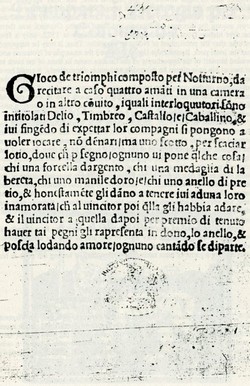 Gioco de triomphi composto per Notturno, da
recitare a caso quattro amāti in una camera
o in altro cōuito, iquali interloquutori sono
intitolan Delio, Timbreo, Castalio, et Caballino, &
iui fingēdo di expettar lor compagni si pongono a
uoler iocare, nō denari, ma uno scetto, per scaciar
lotio, doue chi p segno ognuno ui pone qlche cosa,
chi una forcella dargento, chi una medaglia di la
bereta, chi uno manile doro, et chi uno anello di pre
tio, & honestamēte gli dāno a tenere iui aduna loro
inamorata, ch al uincitor poi qlla gli habbia adare,
& il uincitor a quella dapoi per premio di tenuto
hauer tai pegni gli rapresenta in dono, lo anello, &
poscia lodando amore, ognuno cantādo se diparte.